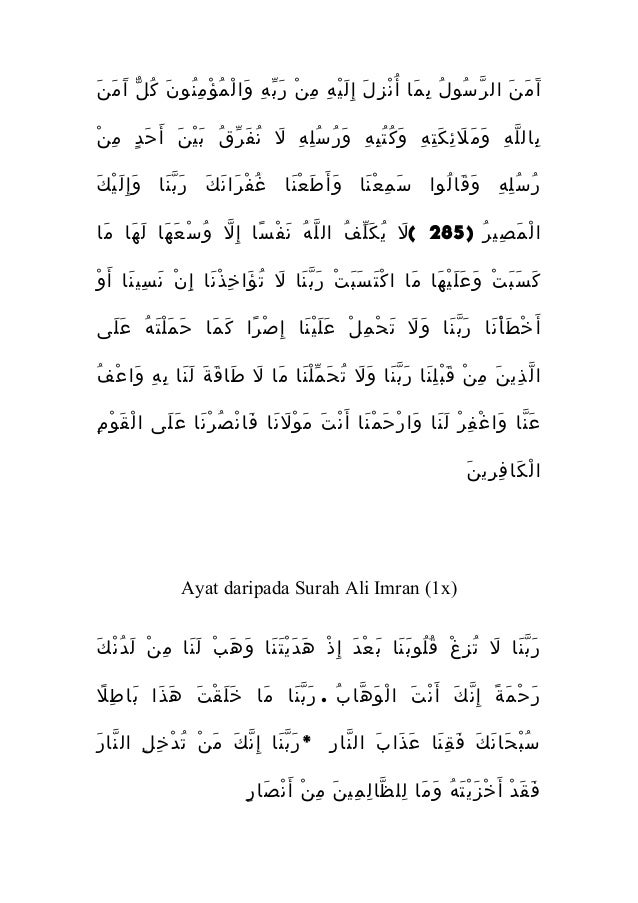 آَمَنَ الرَّسُولُ بِمَا أُنْزِلَ إِلَيْهِ مِنْ رَبِّهِ وَالْمُؤْمِنُونَ كُلٌّ آَمَنَ
بِاللَّهِ وَمَلَائِكَتِهِ وَكُتُبِهِ وَرُسُلِهِ لَا نُفَرِّقُ بَيْنَ أَحَدٍ مِنْ
رُسُلِهِ وَقَالُوا سَمِعْنَا وَأَطَعْنَا غُفْرَانَكَ رَبَّنَا وَإِلَيْكَ
الْمَصِيرُ (285) لَا يُكَلِّفُ اللَّهُ نَفْسًا إِلَّا وُسْعَهَا لَهَا مَا
كَسَبَتْ وَعَلَيْهَا مَا اكْتَسَبَتْ رَبَّنَا لَا تُؤَاخِذْنَا إِنْ نَسِينَا أَوْ
أَخْطَأْنَا رَبَّنَا وَلَا تَحْمِلْ عَلَيْنَا إِصْرًا كَمَا حَمَلْتَهُ عَلَى
الَّذِينَ مِنْ قَبْلِنَا رَبَّنَا وَلَا تُحَمِّلْنَا مَا لَا طَاقَةَ لَنَا بِهِ وَاعْفُ
عَنَّا وَاغْفِرْ لَنَا وَارْحَمْنَا أَنْتَ مَوْلَانَا فَانْصُرْنَا عَلَى الْقَوْمِ
الْكَافِرِينَ
Ayat daripada Surah Ali Imran (1x)
رَبَّنَا لَا تُزِغْ قُلُوبَنَا بَعْدَ إِذْ هَدَيْتَنَا وَهَبْ لَنَا مِنْ لَدُنْكَ
رَحْمَةً إِنَّكَ أَنْتَ الْوَهَّابُ . رَبَّنَا مَا خَلَقْتَ هَذَا بَاطِلًا
سُبْحَانَكَ فَقِنَا عَذَابَ النَّار *رَبَّنَا إِنَّكَ مَنْ تُدْخِلِ النَّارَ
فَقَدْ أَخْزَيْتَهُ وَمَا لِلظَّالِمِينَ مِنْ أَنْصَارٍ